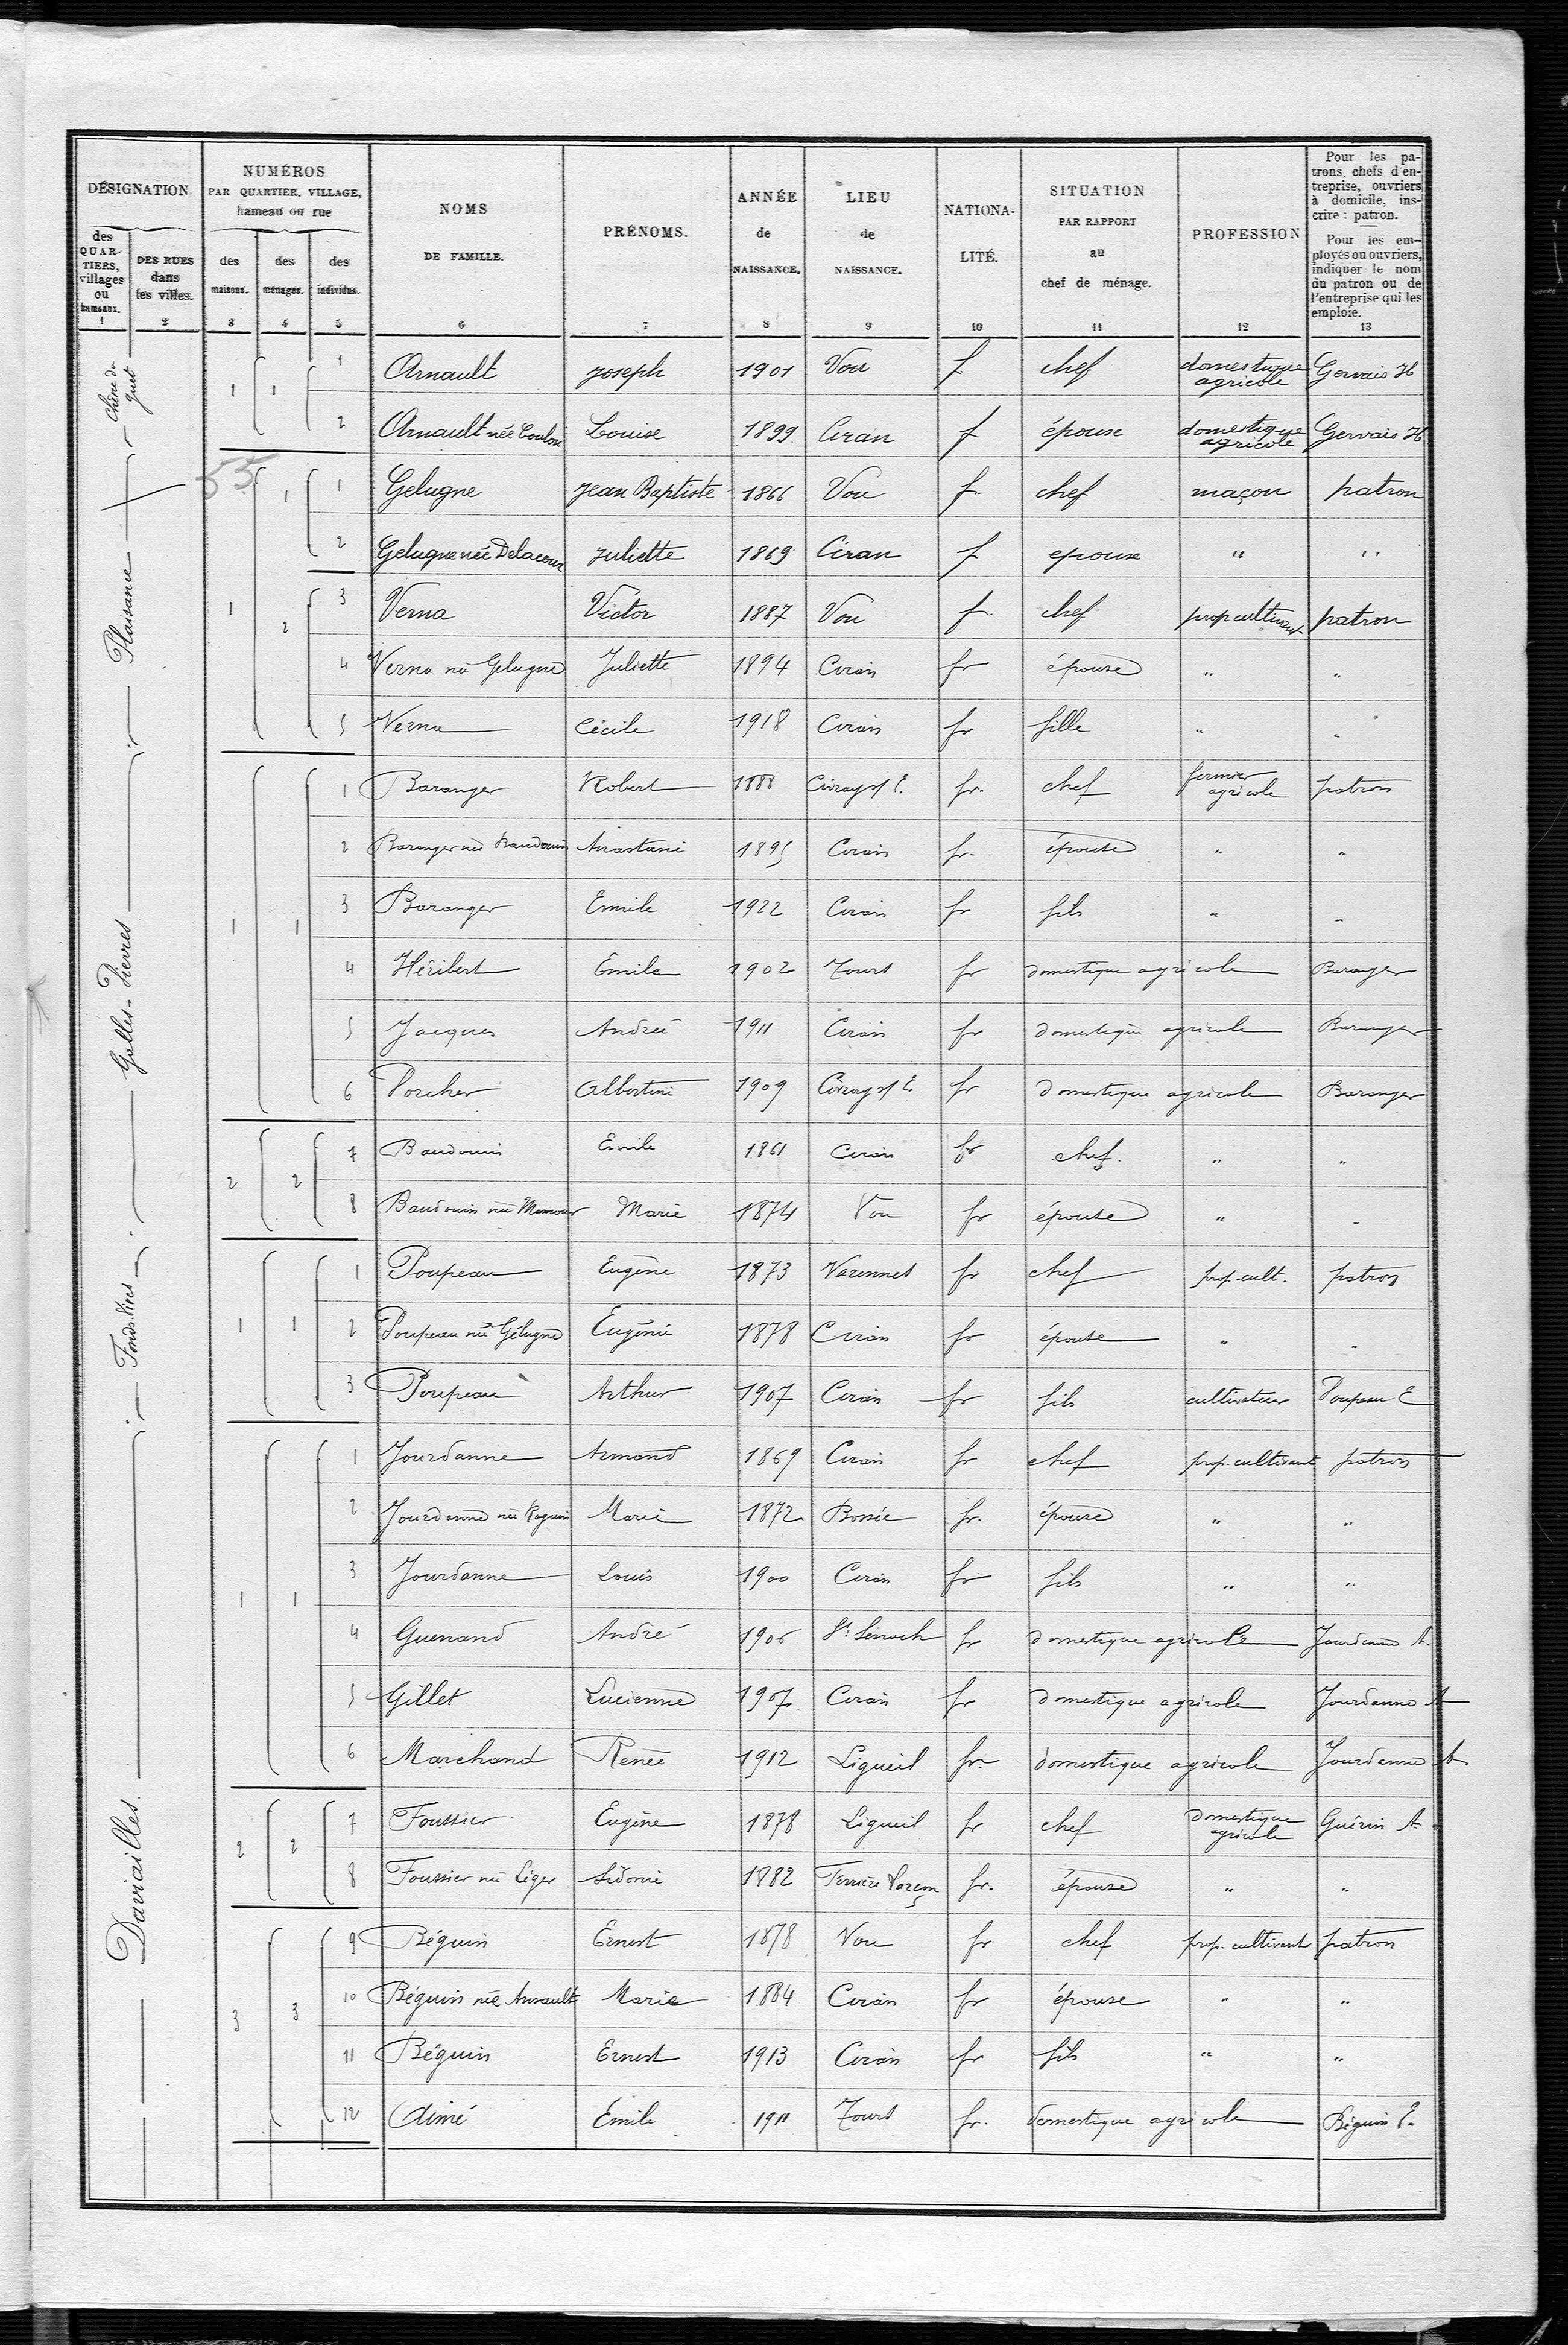 DÉSIGNATION
des QUAR-TIERS, villages ou hameaux.
DES RUES dans les villes.
NUMÉROS
PAR QUARTIER, VILLAGE,
hameau ou rue
des maisons.
des ménages.
des individus.
NOMS
DE FAMILLE.
PRÉNOMS.
ANNÉE
de
NAISSANCE.
LIEU
de
NAISSANCE.
NATIONA-
LITÉ.
SITUATION
PAR RAPPORT
au
chef de ménage.
PROFESSION
Pour les pa-
trons, chefs d'en-
treprise, ouvriers
à domicile, ins-
crire : patron.
Pour les em-
ployés ou ouvriers,
indiquer le nom
du patron ou de
l'entreprise qui les
emploie.
1 2 3 4 5 6 7 8 9 10 11 12 13
Chêne du guet
1 1 1 Arnault Joseph 1901 Vou f chef domestique agricole Gervais H
2 Arnault née Coulon Louise 1899 Ciran f épouse domestique agricole Gervais H
55
Plaisance
1 1 1 Gelugne Jean Baptiste 1866 Vou f. chef maçon patron
2 Gelugne née Delacour Juliette 1869 Ciran f epouse " "
2 3 Verna Victor 1887 Vou f. chef prop cultivant patron
4 Verna née Gelugne Juliette 1894 Ciran fr épouse " "
5 Verna Cécile 1918 Ciran fr fille " "
Galles-Pierres
1 1 1 Baranger Robert 1888 Civray s/ E. fr. chef fermier agricole patron
2 Baranger née Baudouin Anastasie 1895 Ciran fr. épouse " "
3 Baranger Emile 1922 Ciran fr fils " "
4 Héribert Emile 1902 Tours fr domestique agricole Baranger
5 Jacques Andrée 1911 Ciran fr domestique agricole Baranger
6 Porcher Albertine 1909 Civray s/ E. fr domestique agricole Baranger
2 2 7 Baudouin Emile 1861 Ciran fr chef. " "
8 Baudouin née Marie 1874 Vou fr épouse " "
1 1 1 Poupeau Eugène 1873 Varennes fr chef prop-cult. patron
2 Poupeau née Gélugne Eugénie 1878 Ciran fr épouse " "
3 Poupeau Arthur 1907 Ciran fr fils cultivateur Poupeau E
Davricailles
1 1 1 Jourdanne Armand 1869 Ciran fr chef prop. cultivant patron
2 Jourdanne née Raguin Marie 1872 Bossée fr. épouse " "
3 Jourdanne Louis 1900 Ciran fr fils " "
4 Guenand André 1906 St Senoch fr domestique agricole Jourdanne A.
5 Gillet Lucienne 1907 Ciran fr domestique agricole Jourdanne A
6 Marchand Renée 1912 Ligueil fr. domestique agricole Jourdanne A
2 2 7 Foussier Eugène 1878 Ligueil fr chef domestique agricole Guérin A.
8 Foussier née Léger Sidonie 1882 Ferrière Larçon fr. épouse " "
3 3 9 Béguin Ernest 1878 Vou fr chef prop. cultivant patron
10 Béguin née Arnault Marie 1884 Ciran fr épouse " "
11 Béguin Ernest 1913 Ciran fr fils " "
12 Aimé Émile 1911 Tours fr. domestique agricole Béguin E.